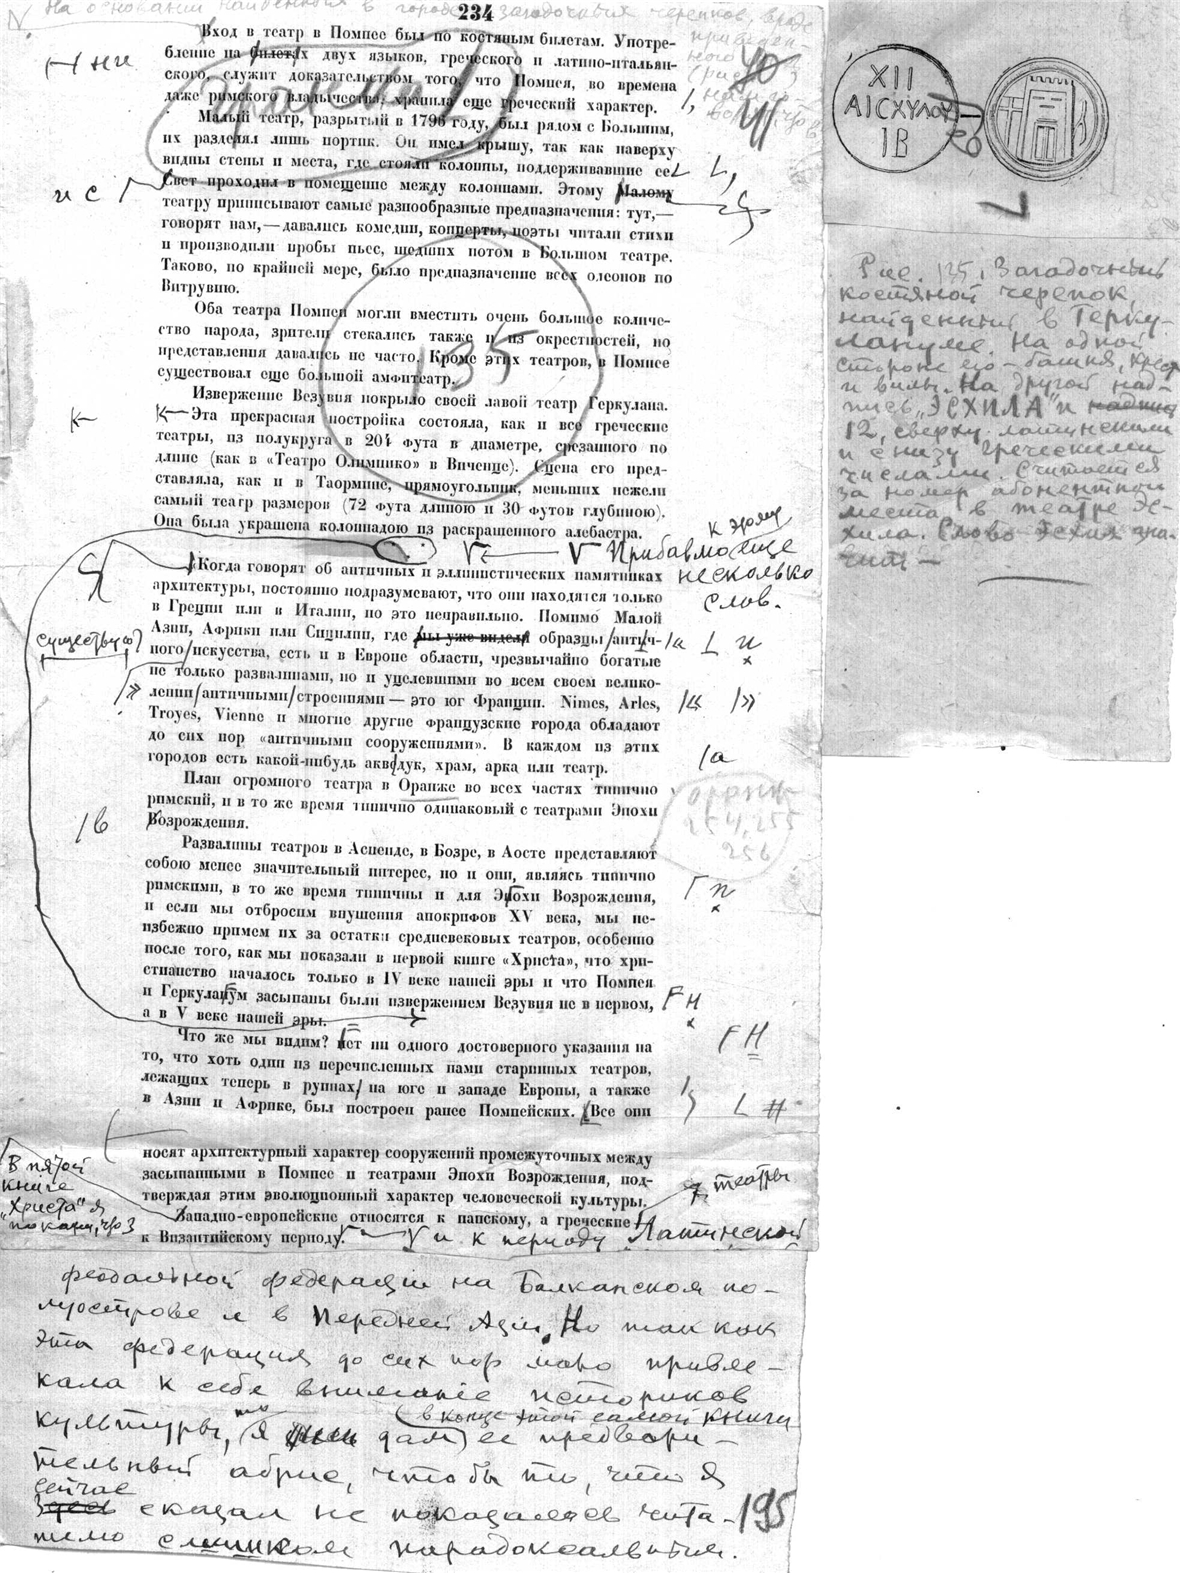 На основании найденных в городе загадочных черепков, вроде
приведен-
ного
234
Вход в театр в Помпее был по костяным билетам. Употре-
бление на билетах двух языков, греческого и латино-итальян-
ского, служит доказательством того, что Помпея, во времена
даже римского владычества, хранила еще греческий характер.
Малый театр, разрытый в 1796 году, был рядом с Большим,
их разделял лишь портик. Он имел крышу, так как наверху
видны стены и места, где стояли колонны, поддерживавшие ее
Свет проходил в помещение между колоннами. Этому Малому
театру приписывают самые разнообразные предназначения: тут,—
говорят нам,— давались комедии, концерты, поэты читали стихи
и производили пробы пьес, шедших потом в Большом театре.
Таково, по крайней мере, было предназначение всех олеонов по
Витрувию.
Оба театра Помпеи могли вместить очень большое количе-
ство народа, зрители стекались также и из окрестностей, но
представления давались не часто. Кроме этих театров, в Помпее
существовал еще большой амфитеатр.
135
Извержение Везувия покрыло своей лавой театр Геркулана.
Эта прекрасная постройка состояла, как и все греческие
театры, из полукруга в 204 фута в диаметре, срезанного по
длине (как в «Театро Олимпико» в Виченце). Сцена его пред-
ставляла, как и в Таормине, прямоугольник, меньших нежели
самый театр размеров (72 фута длиною и 30 футов глубиною).
Она была украшена колоннадою из раскрашенного алебастра.
Прибавлю еще
к этому
несколько
слов.
Когда говорят об античных и эллинистических памятниках
архитектуры, постоянно подразумевают, что они находятся только
в Греции или в Италии, но это неправильно. Помимо Малой
Азии, Африки или Сицилии, где мы уже видели образцы антич-
существую
ного искусства, есть и в Европе области, чрезвычайно богатые
не только развалинами, но и уцелевшими во всем своем велико-
лепии античными строениями — это юг Франции. Nimes, Arles,
Troyes, Vienne и многие другие французские города обладают
до сих пор «античными сооружениями». В каждом из этих
городов есть какой-нибудь акведук, храм, арка или театр.
План огромного театра в Оранже во всех частях типично
римский, и в то же время типично одинаковый с театрами Эпохи
Возрождения.
оранж
254, 255
256
Развалины театров в Аспенде, в Бозре, в Аосте представляют
собою менее значительный интерес, но и они, являясь типично
римскими, в то же время типичны и для Эпохи Возрождения,
и если мы отбросим внушения апокрифов XV века, мы не-
избежно примем их за остатки средневековых театров, особенно
после того, как мы показали в первой книге «Христа», что хри-
стианство началось только в IV веке нашей эры и что Помпея
и Геркуланум засыпаны были извержением Везувия не в первом,
а в V веке нашей эры.
Что же мы видим? Нет ни одного достоверного указания на
то, что хоть один из перечисленных нами старинных театров,
лежащих теперь в руинах на юге и западе Европы, а также
в Азии и Африке, был построен ранее Помпейских. Все они
носят архитектурный характер сооружений промежуточных между
засыпанными в Помпее и театрами Эпохи Возрождения, под-
тверждая этим эволюционный характер человеческой культуры.
В пятой
книге
„Христа" я
покажу, что
театры
Западно-европейские относятся к папскому, а греческие
к Византийскому периоду. и к периоду Латинской
феодальной федерации на Балканском по-
луострове и в Передней Азии. Но так как
эта федерация до сих пор мало привле-
кала к себе внимание историков
культуры, то я дам в конце этой самой книги ее предвари-
тельный абрис, чтобы то, что я
сейчас
здесь сказал не показалось чита-
телю слишком парадоксальным.
195
XII
ΑΙΣΧΥΛΟΥ
IB
Рис. 135. Загадочный
костяной черепок,
найденный в Герку-
лануме. На одной
стороне его – башня, крест
и вилы. На другой над-
пись „ЭСХИЛА" и надпис
12, сверху латинскими
и снизу греческими
числами. Считается
за номер абонентного
места в театре Эс-
хила. Слово Эсхил зна-
чит —